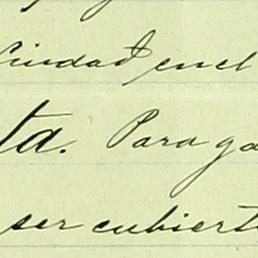 Ciudad en el
ta. Para ga
ser cubierto